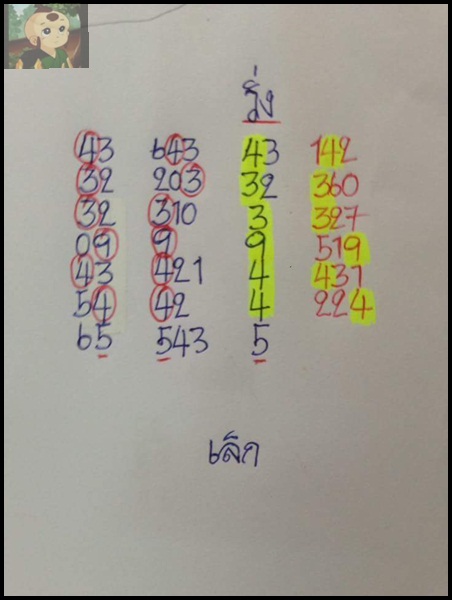 วิ่ง
43 643 43 142
32 203 32 360
32 310 3 327
09 9 9 519
43 421 4 431
54 42 4 224
65 543 5
เล็ก